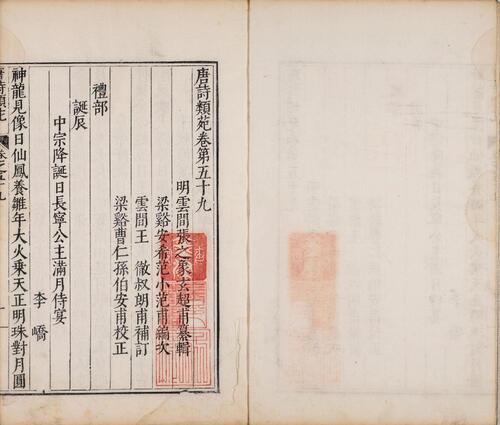 唐詩類苑卷第五十九
明雲間張之象玄超甫纂輯
梁谿安希范小范甫編次
雲間王徹叔朗甫補訂
梁谿曹仁孫伯安甫校正
禮部
誕辰
中宗降誕日長寧公主滿月侍宴
李嶠
神龍見像日仙鳳養雛年大火乘天正明珠對月圓